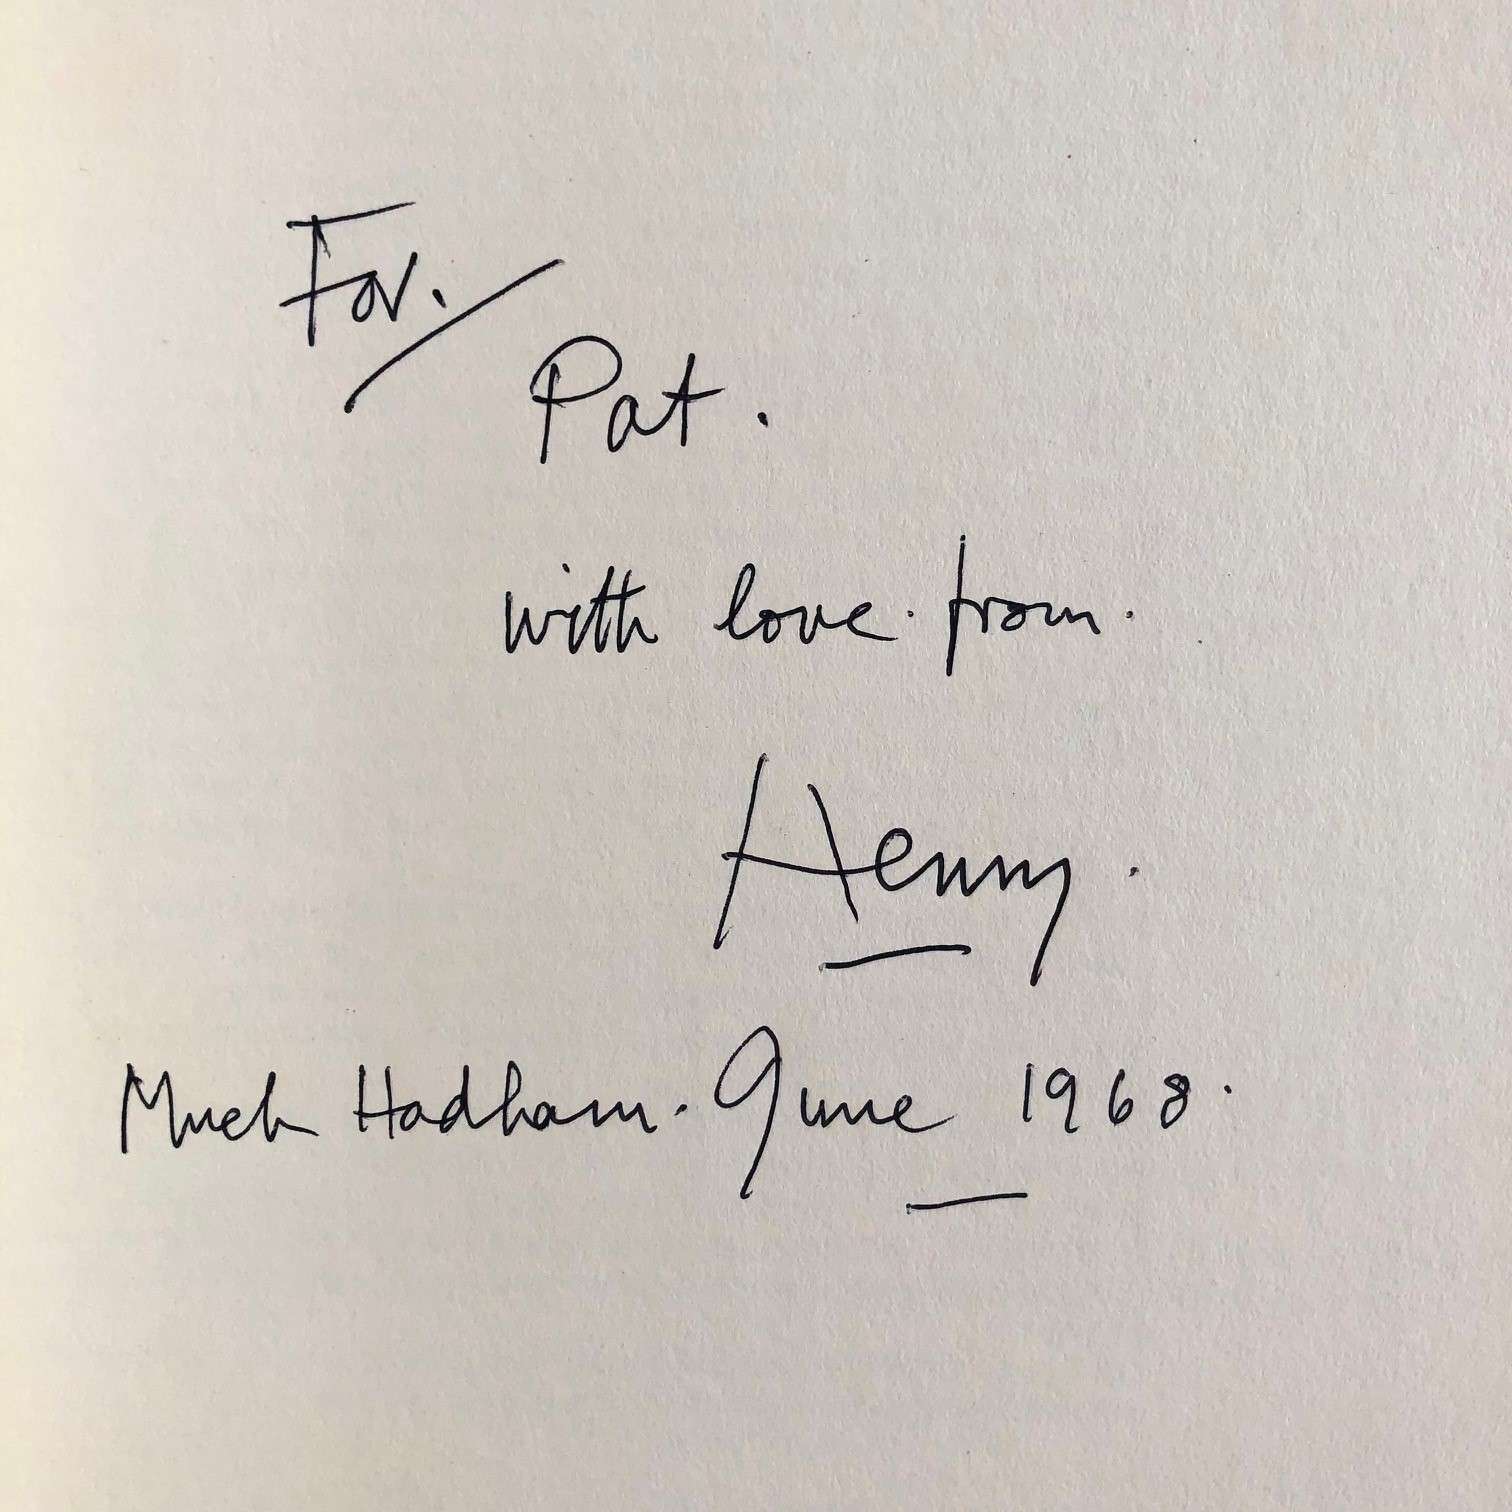 For.
Pat.
with love. from.
Henry.
Much Hadham. June 1968.